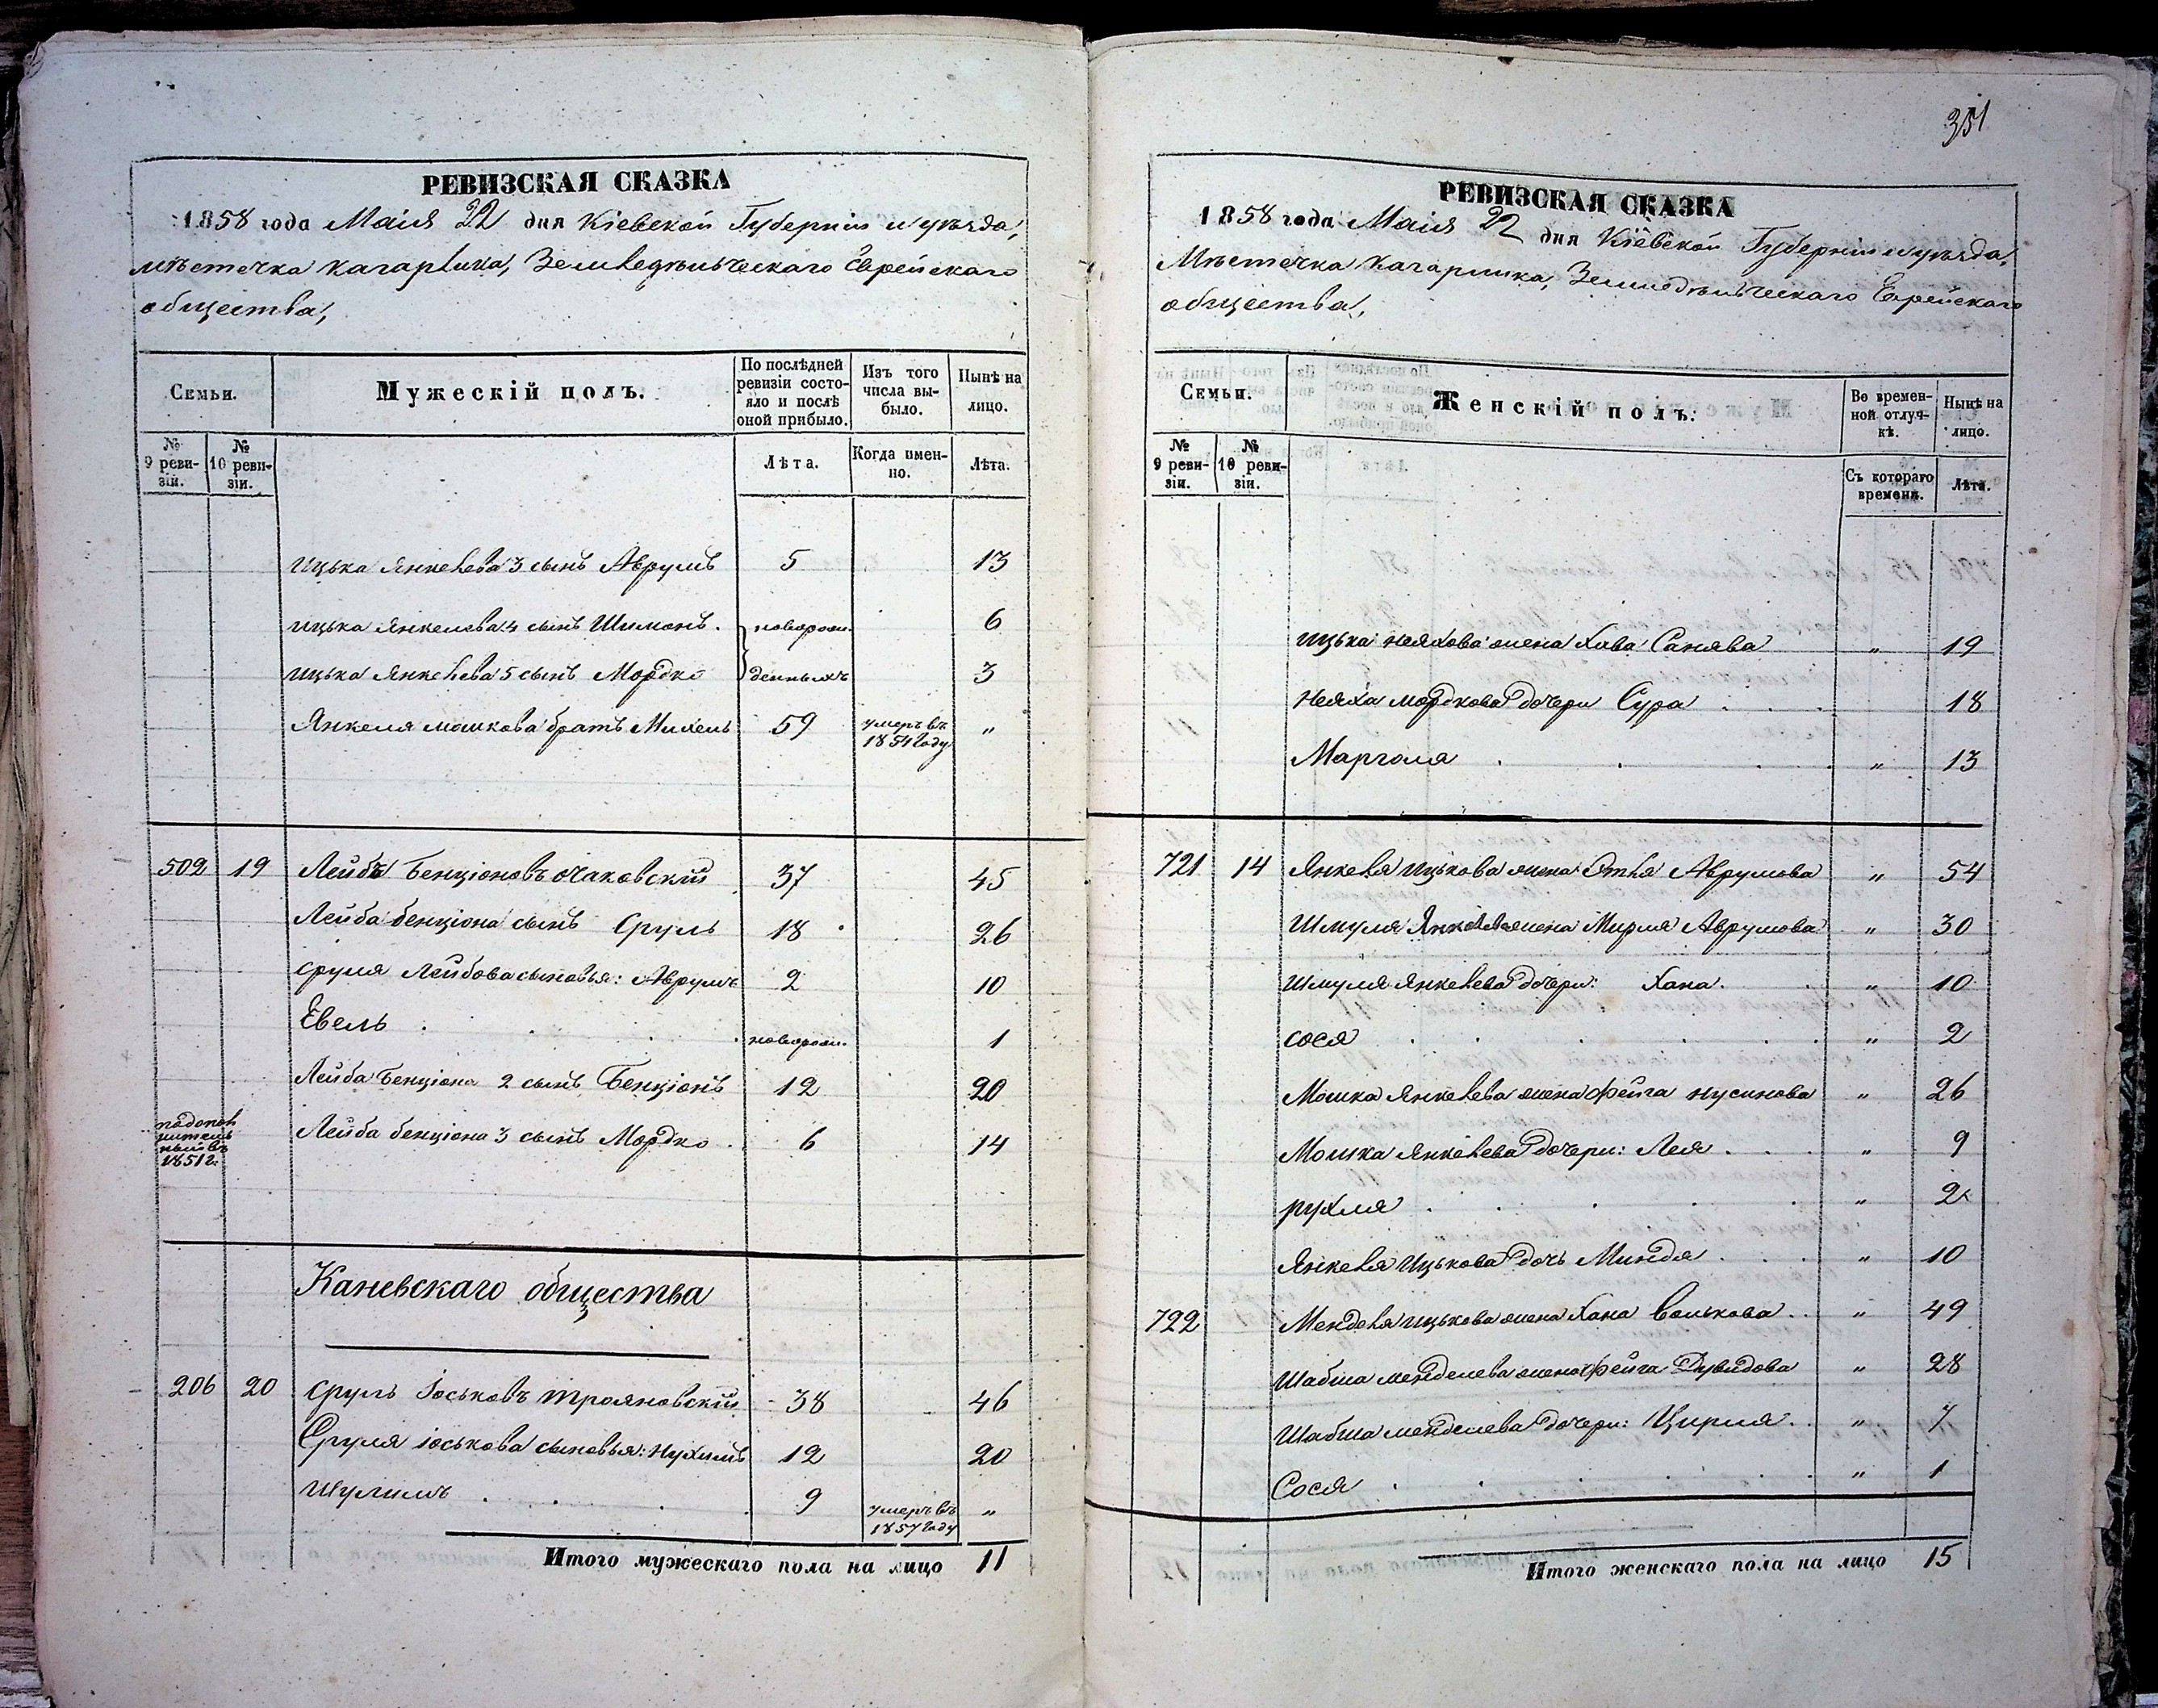 РЕВИЗСКАЯ СКАЗКА
1858 года Маія 22 дня Кіевской Губерніи и уѣзда,
мѣстечка Кагарлика, Земледѣльческаго Еврейскаго
общества,
Семьи.
Мужескій полъ.
По послѣдней ревизіи состояло и послѣ оной прибыло.
Изъ того числа выбыло.
Нынѣ на лицо.
№ 9 ревизіи.
№ 10 ревизіи.
Лѣта.
Когда именно.
Лѣта.
Ицька Янкелева 3 сынъ Аврумъ 5 13
Ицька Янкелева 4 сынъ Шимонъ. новорож- 6
Ицька Янкелева 5 сынъ Мордко денныхъ 3
Янкеля Мошкова братъ Михель 59 умеръ въ 1854 году "
502 19 Лейбъ Бенціоновъ Очаковскій 37 45
Лейба Бенціона сынъ Сруль 18 26
Сруля Лейбова сыновья: Аврумъ 2 10
Евель новорож. 1
Лейба Бенціона 2 сынъ Бенціонъ 12 20
по дополнительный въ 1851 г. Лейба Бенціона 3 сынъ Мордко 6 14
Каневскаго общества
206 20 Сруль Іоськовъ Трояновскій 38 46
Сруля Іоськова сыновья: Нухимъ 12 20
Шулимъ 9 умеръ въ 1857 году "
Итого мужескаго пола на лицо 11
351
РЕВИЗСКАЯ СКАЗКА
1858 года Маія 22 дня Кіевской Губерніи и уѣзда,
Мѣстечка Кагарлика, Земледѣльческаго Еврейскаго
общества,
Семьи.
Женскій полъ.
Во временной отлучкѣ.
Нынѣ на лицо.
№ 9 ревизіи.
№ 10 ревизіи.
Съ котораго времени.
Лѣта.
Ицька Неяхова жена Хава Санява " 19
Неяха Мордкова дочери Сура 18
Марголя " 13
721 14 Янкеля Ицькова жена Этля Аврумова " 54
Шмуля Янкелева жена Мирля Аврумова " 30
Шмуля Янкелева дочери: Хана. " 10
Сося " 2
Мошка Янкелева жена Фейга Нусинова " 26
Мошка Янкелева дочери: Лея " 9
Рухля " 2
Янкеля Ицькова дочь Миндя " 10
722 Менделя Ицькова жена Хана Волькова " 49
Шабша Менделева жена Фейга Дувидова " 28
Шабша Менделева дочери: Цирля " 7
Сося " 1
Итого женскаго пола на лицо 15